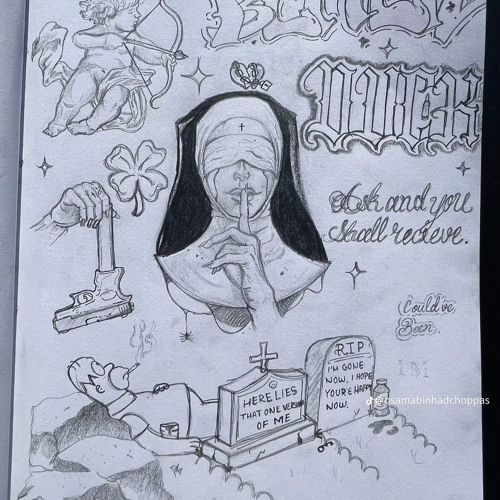 Ask and you
Skall recieve.
Could've
Been.
HERE LIES
THAT ONE VERSION
OF ME
R.I.P
I'M GONE
NOW, I HOPE
YOU'RE HAPPY
NOW.
@osamabinhadchoppas